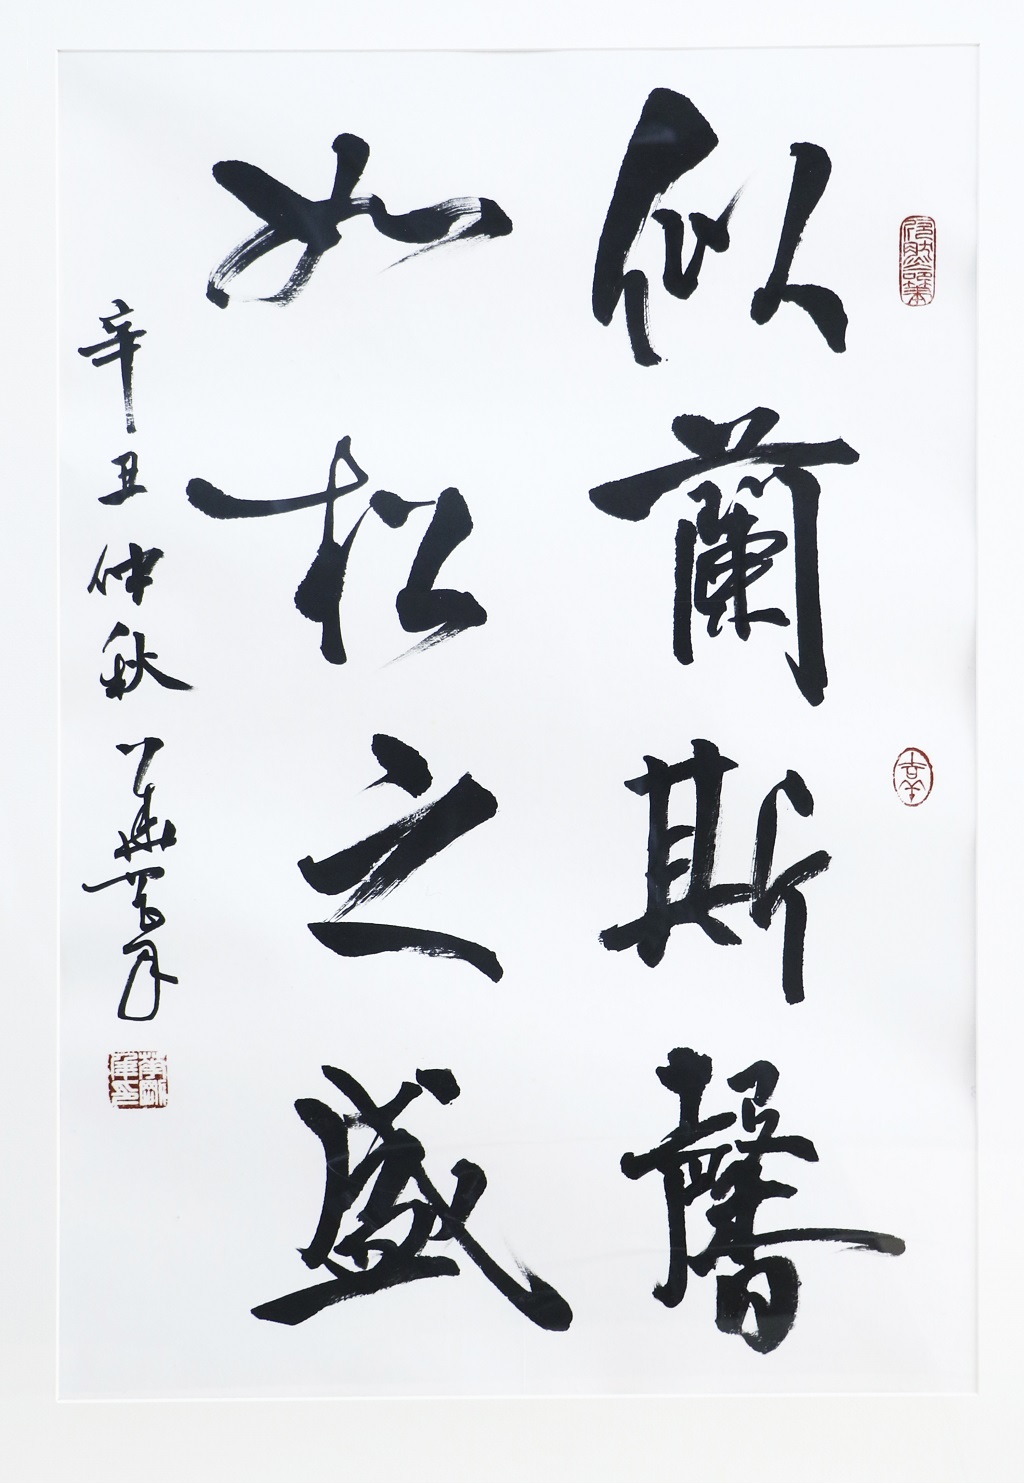 似蘭斯馨
如松之盛
辛丑仲秋